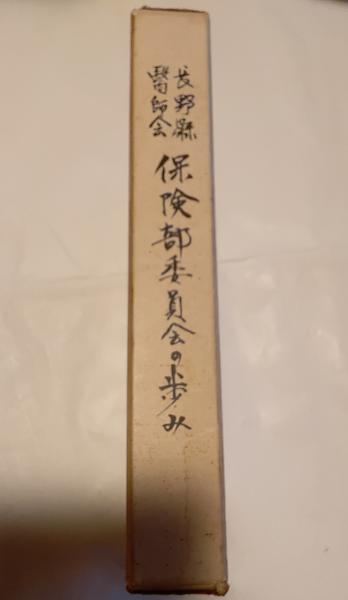 長野縣
醫師会
保険部委員会の歩み